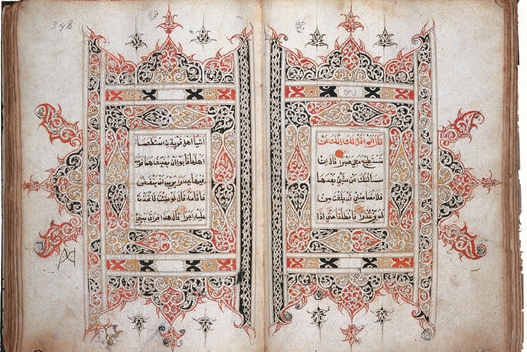 قَالَ اَلَمْ اَقُلْ لَكَ اِنَّكَ لَنْ
تَسْتَطِيْعَ مَعِيَ صَبْرًا قَالَ اِنْ
سَاَلْتُكَ عَنْ شَيْئٍ بَعْدَهَا
فَلَا تُصَاحِبْنِيْ قَدْ بَلَغْتَ مِنْ
لَدُنِّيْ عُذْرًا فَانْطَلَقَا حَتّٰى اِذَا
اَتَيَا اَهْلَ قَرْيَةٍ اسْتَطْعَمَا
اَهْلَهَا فَاَبَوْا اَنْ يُضَيِّفُوْهُمَا فَوَجَدَا
فِيْهَا جِدَارًا يُرِيْدُ اَنْ يَنْقَضَّ
فَاَقَامَهُ قَالَ لَوْ شِئْتَ لَتَّخَذْتَ
عَلَيْهِ اَجْرًا قَالَ هٰذَا فِرَاقُ بَيْنِيْ
348